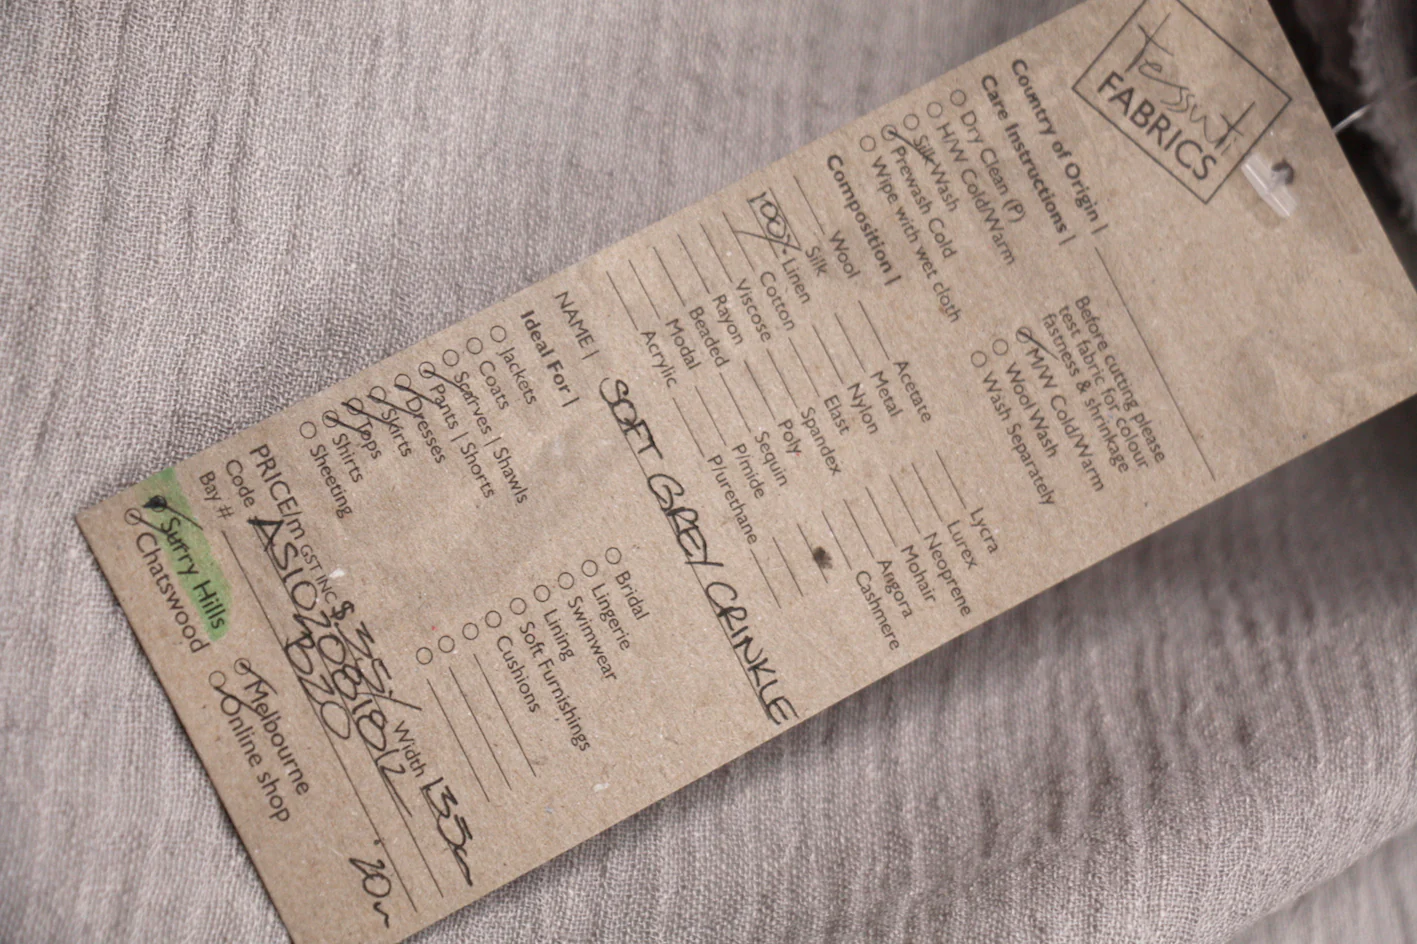 tessuti
FABRICS
Country of Origin |
Care Instructions |
Dry Clean (P)
H/W Cold/Warm
Silk Wash
Prewash Cold
Wipe with wet cloth
Before cutting please
test fabric for colour
fastness & shrinkage
M/W Cold/Warm
Wool Wash
Wash Separately
Composition |
Wool
Silk
100% Linen
Cotton
Viscose
Rayon
Beaded
Modal
Acrylic
Acetate
Metal
Nylon
Elast
Spandex
Poly
Sequin
P/mide
P/urethane
Lycra
Lurex
Neoprene
Mohair
Angora
Cashmere
NAME | SOFT GREY CRINKLE
Ideal For |
Jackets
Coats
Scarves | Shawls
Pants | Shorts
Dresses
Skirts
Tops
Shirts
Sheeting
Bridal
Lingerie
Swimwear
Lining
Soft Furnishings
Cushions
PRICE/m GST INC $35/ Width 135
Code
Bay # B20 20m
Surry Hills
Chatswood
Melbourne
Online shop